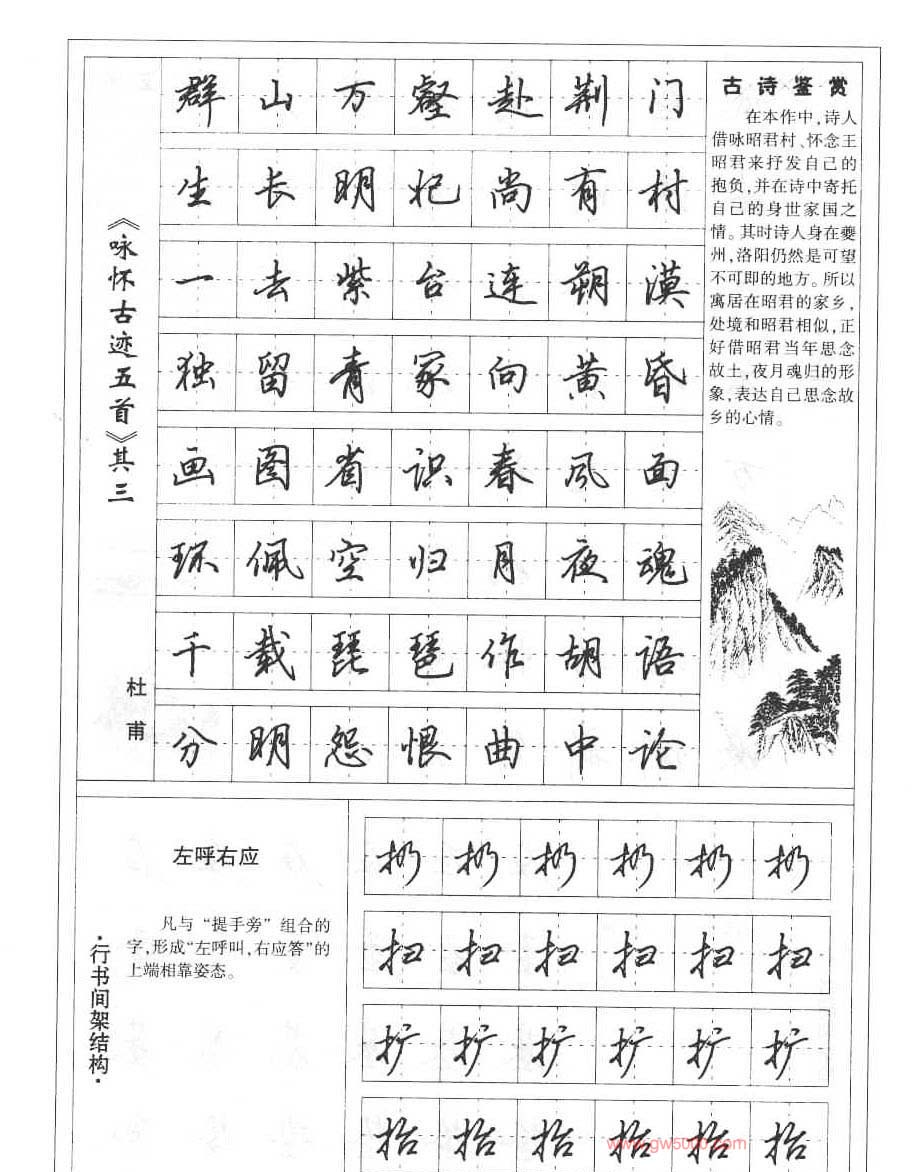 《咏怀古迹五首》其三
杜甫
群山万壑赴荆门
生长明妃尚有村
一去紫台连朔漠
独留青冢向黄昏
画图省识春风面
环佩空归月夜魂
千载琵琶作胡语
分明怨恨曲中论
古诗鉴赏
在本作中，诗人
借咏昭君村、怀念王
昭君来抒发自己的
抱负，并在诗中寄托
自己的身世家国之
情。其时诗人身在夔
州，洛阳仍然是可望
不可即的地方。所以
寓居在昭君的家乡，
处境和昭君相似，正
好借昭君当年思念
故土，夜月魂归的形
象，表达自己思念故
乡的心情。
·行书间架结构·
左呼右应
凡与“提手旁”组合的
字，形成“左呼叫，右应答”的
上端相靠姿态。
扔扔扔扔扔扔
扫扫扫扫扫扫
扩扩扩扩扩扩
抬抬抬抬抬抬
www.gw5000.com